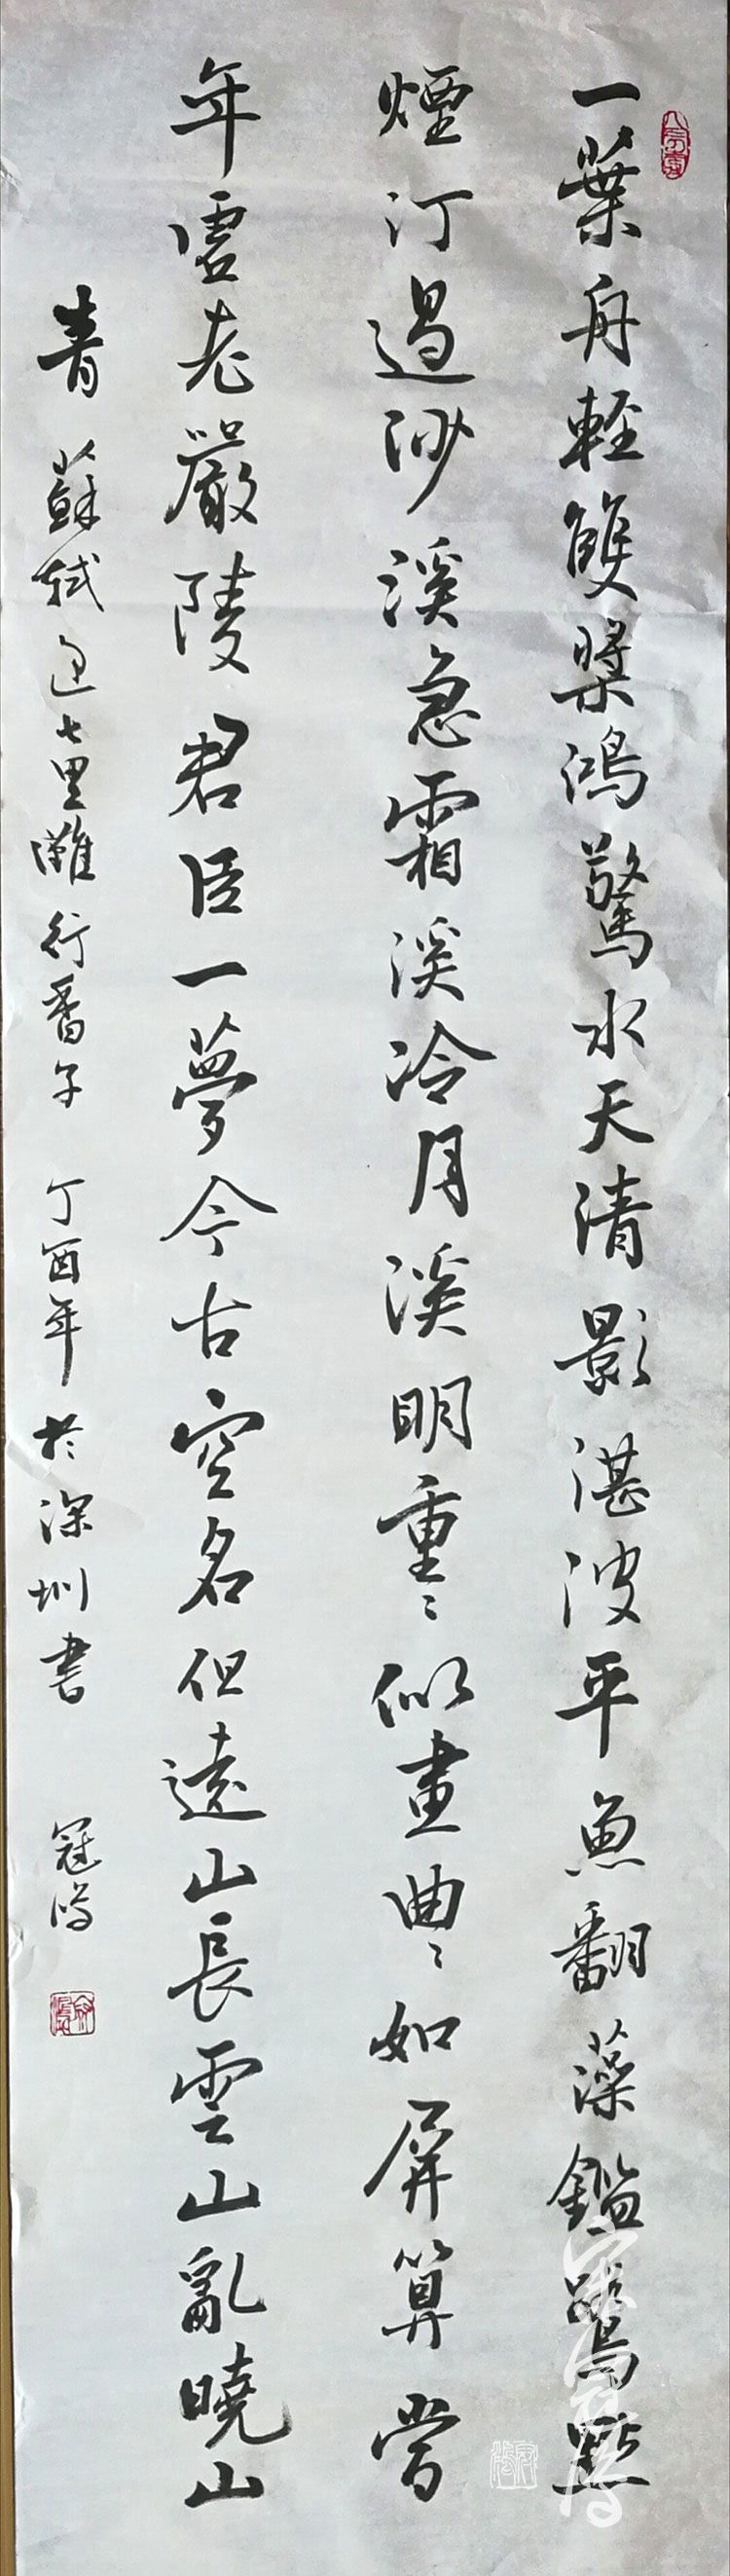 一葉舟輕雙槳鴻驚水天清影湛波平魚翻藻鑑鷺點
煙汀過沙溪急霜溪冷月溪明重〻似畫曲〻如屏算當
年虛老嚴陵君臣一夢今古空名但遠山長雲山亂曉山
青 蘇軾過七里灘行香子 丁酉年於深圳書 冠鴻